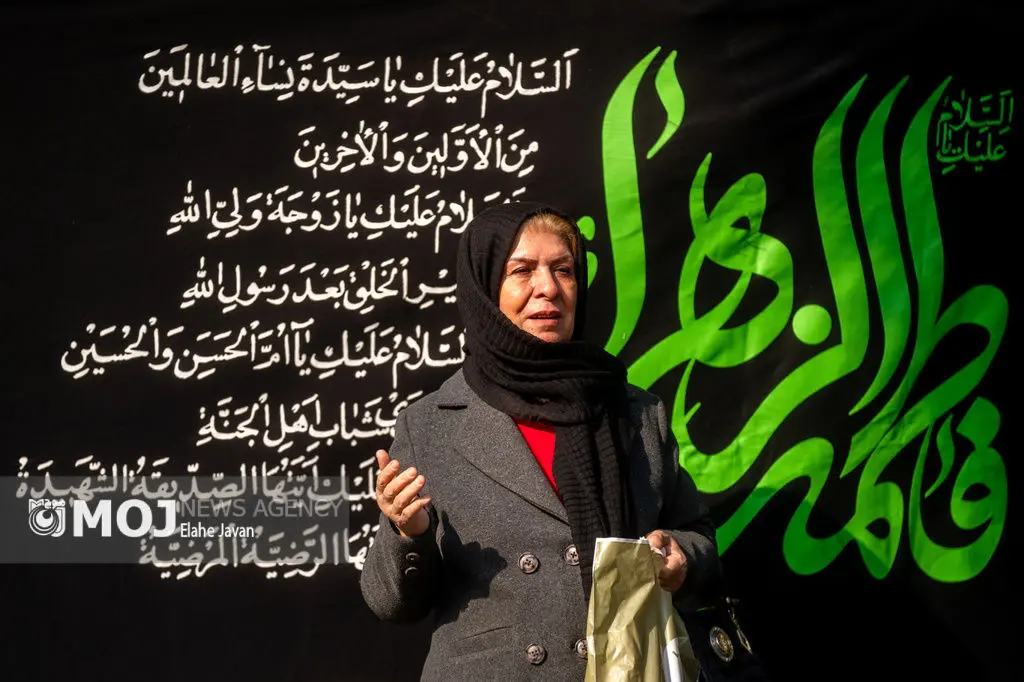 اَلسَّلامُ عَلَيْكِ يا سَيِّدَةَ نِساءِ الْعالَمينَ
مِنَ الْاَوَّلينَ وَالْاخِرينَ
عَلَيْكِ يا زَوْجَةَ وَلِيِّ اللهِ
الْخَلْقِ بَعْدَ رَسُولِ اللهِ
اَلسَّلامُ عَلَيْكِ يا اُمَّ الْحَسَنِ وَالْحُسَيْنِ
شَبابِ اَهْلِ الْجَنَّةِ
عَلَيْكِ اَيَّتُهَا الصِّدّيقَةُ الشَّهيدَةُ
الرَّضِيَّةُ الْمَرْضِيَّةُ
اَلسَّلامُ
عَلَيْكِ يا
فاطمة الزهرا
موج MOJ NEWS AGENCY
Elahe Javan